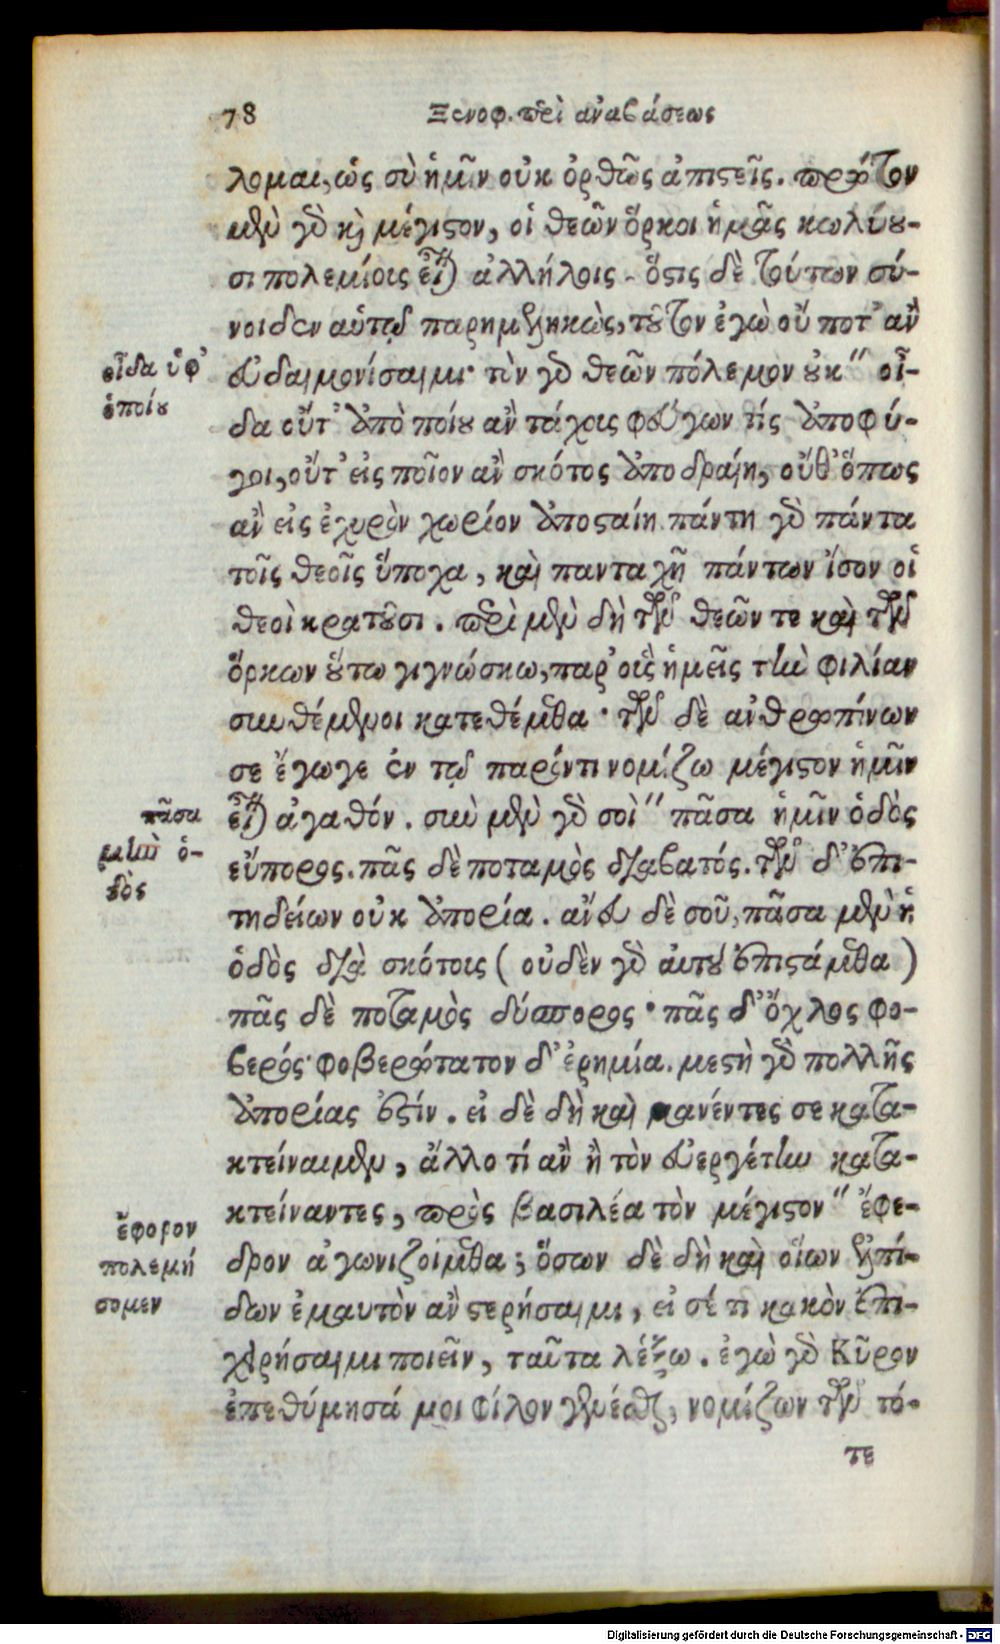 78 Ξενοφ. περὶ ἀναβάσεως
λομαι, ὡς σὺ ἡμῖν οὐκ ὀρθῶς ἀπιστεῖς. πρῶτον
μὲν γὰρ καὶ μέγιστον, οἱ θεῶν ὅρκοι ἡμᾶς κωλύου-
σι πολεμίοις εἶναι ἀλλήλοις. ὅστις δὲ τούτων σύ-
νοιδεν αὑτῷ παρημεληκὼς, τοῦτον ἐγὼ οὔ ποτ' ἂν
εὐδαιμονίσαιμι· τὸν γὰρ θεῶν πόλεμον οὐκ " οἶ-
οἶδα ὑφ'
ὁποίου
δα οὔτ' ἀπὸ ποίου ἂν τάχοις φεύγων τίς ἀποφύ-
γοι, οὔτ' εἰς ποῖον ἂν σκότος ἀποδραίη, οὔθ' ὅπως
ἂν εἰς ἐχυρὸν χωρίον ἀποσταίη. πάντη γὰρ πάντα
τοῖς θεοῖς ὕποχα, καὶ πανταχῆ πάντων ἴσον οἱ
θεοὶ κρατοῦσι. περὶ μὲν δὴ τῶν θεῶν τε καὶ τῶν
ὅρκων οὕτω γιγνώσκω, παρ' οἷς ἡμεῖς τὴν φιλίαν
συνθέμενοι κατεθέμεθα· τῶν δὲ ἀνθρωπίνων
σε ἔγωγε ἐν τῷ παρόντι νομίζω μέγιστον ἡμῖν
εἶναι ἀγαθόν. σὺν μὲν γὰρ σοὶ " πᾶσα ἡμῖν ὁδὸς
πᾶσα
μὲν ὁ-
δὸς
εὔπορος. πᾶς δὲ ποταμὸς διαβατός. τῶν δ' ἐπι-
τηδείων οὐκ ἀπορία. ἄνευ δὲ σοῦ, πᾶσα μὲν ἡ
ὁδὸς διὰ σκότοις ( οὐδὲν γὰρ αὐτοῦ ἐπιστάμεθα )
πᾶς δὲ ποταμὸς δύσπορος· πᾶς δ' ὄχλος φο-
βερός· φοβερώτατον δ' ἐρημία. μεστὴ γὰρ πολλῆς
ἀπορίας ἐστίν. εἰ δὲ δὴ καὶ μανέντες σε κατα-
κτείναιμεν, ἄλλο τί ἂν ἢ τὸν εὐεργέτην κατα-
κτείναντες, πρὸς βασιλέα τὸν μέγιστον " ἔφε-
ἔφορον
πολεμή
σομεν
δρον ἀγωνιζοίμεθα; ὅσων δὲ δὴ καὶ οἵων ἐλπί-
δων ἐμαυτὸν ἂν στερήσαιμι, εἰ σέ τι κακὸν ἐπι-
χειρήσαιμι ποιεῖν, ταῦτα λέξω. ἐγὼ γὰρ Κῦρον
ἐπεθύμησά μοι φίλον γενέσθαι, νομίζων τῶν τό-
τε
Digitalisierung gefördert durch die Deutsche Forschungsgemeinschaft - DFG